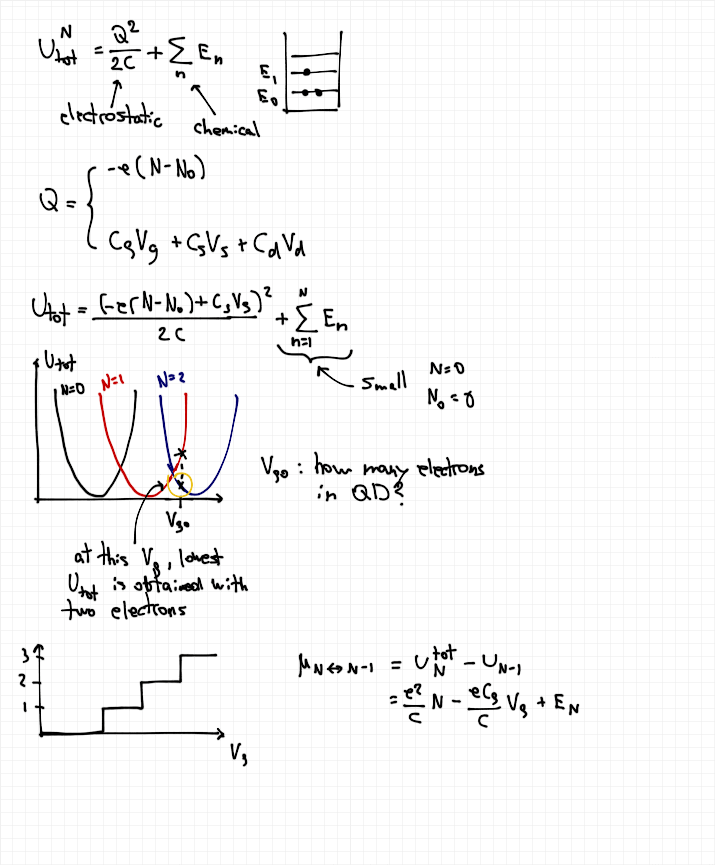 U_tot^N = Q²/2C + Σ_n E_n
electrostatic
chemical
E₁
E₀
Q = { -e(N-N₀)
C_gV_g + C_sV_s + C_dV_d
U_tot = (-e(N-N₀)+C_gV_g)²/2C + Σ_{n=1}^N E_n
small
N=0
N₀=0
U_tot
N=0
N=1
N=2
V_g0
V_g0 : how many electrons
in QD?
at this V_g, lowest
U_tot is obtained with
two electrons
3
2
1
V_g
μ_{N↔N-1} = U_N^tot - U_{N-1}
= e²/C N - eC_g/C V_g + E_N